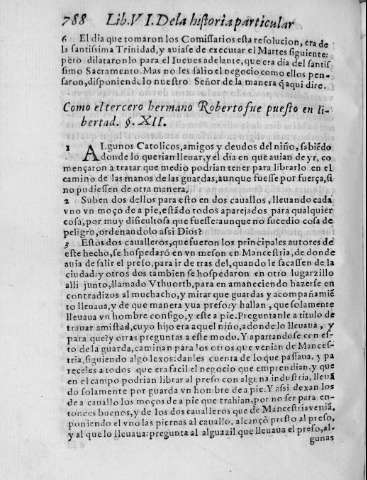 788 Lib. VI. De la historia particular
6 El dia que tomaron los Comissarios esta resolucion, era de
la santissima Trinidad, y auiase de executar el Martes siguiente:
pero dilataronlo para el Iueues adelante, que era dia del santis
simo Sacramento. Mas no les salio el negocio como ellos pen-
saron, disponiendolo nuestro Señor de la manera q̃ aqui dire.
Como el tercero hermano Roberto fue puesto en li-
bertad. §. XII.
1 ALgunos Catolicos, amigos y deudos del niño, sabiẽdo
adonde lo querian lleuar, y el dia en que auian de yr, co-
mençaron a tratar que medio podrian tener para librarlo en el
camino de las manos de las guardas, aunque fuesse por fuerça, si
no pudiessen de otra manera.
2 Suben dos dellos para esto en dos cauallos, lleuando cada
vno vn moço de a pie, estãdo todos aparejados para qualquier
cosa, por muy dificultosa que fuesse: aunque no sucedio cosa de
peligro, ordenandolo assi Dios?
3 Estos dos caualleros, que fueron los principales autores de
este hecho, se hospedarõ en vn meson en Mancestria, de donde
auia de salir el preso, para ir detras del, quando le sacassen de la
ciudad: y otros dos tambien se hospedaron en otro lugarzillo
alli junto, llamado Vthuorth, para en amaneciendo hazerse en
contradizos al muchacho, y mirar que guardas y acompañamiẽ
to lleuaua, y de que manera yua preso, y hallan, que solamente
lleuaua vn hombre consigo, y este a pie. Preguntanle a titulo de
trauar amistad, cuyo hijo era aquel niño, adonde lo lleuaua, y
para que? y otras preguntas a este modo. Y apartandose con es-
to de la guarda, caminan para los otros que venian de Mances-
tria, siguiendo algo lexos: danles cuenta de lo que passaua, y pa
receles a todos que era facil el negocio que emprendian, y que
en el campo podrian librar al preso con alguna industria, lleuã
do solamente por guarda vn hombre de a pie. Y assi dexan los
de a cauallo los moços de a pie que trahian, por no ser para en-
tonces buenos, y de los dos caualleros que de Mancestria veniã,
poniendo el vno las piernas al cauallo, alcançò presto al preso,
y al que lo lleuaua: pregunta al alguazil que lleuaua el preso, al-
gunas